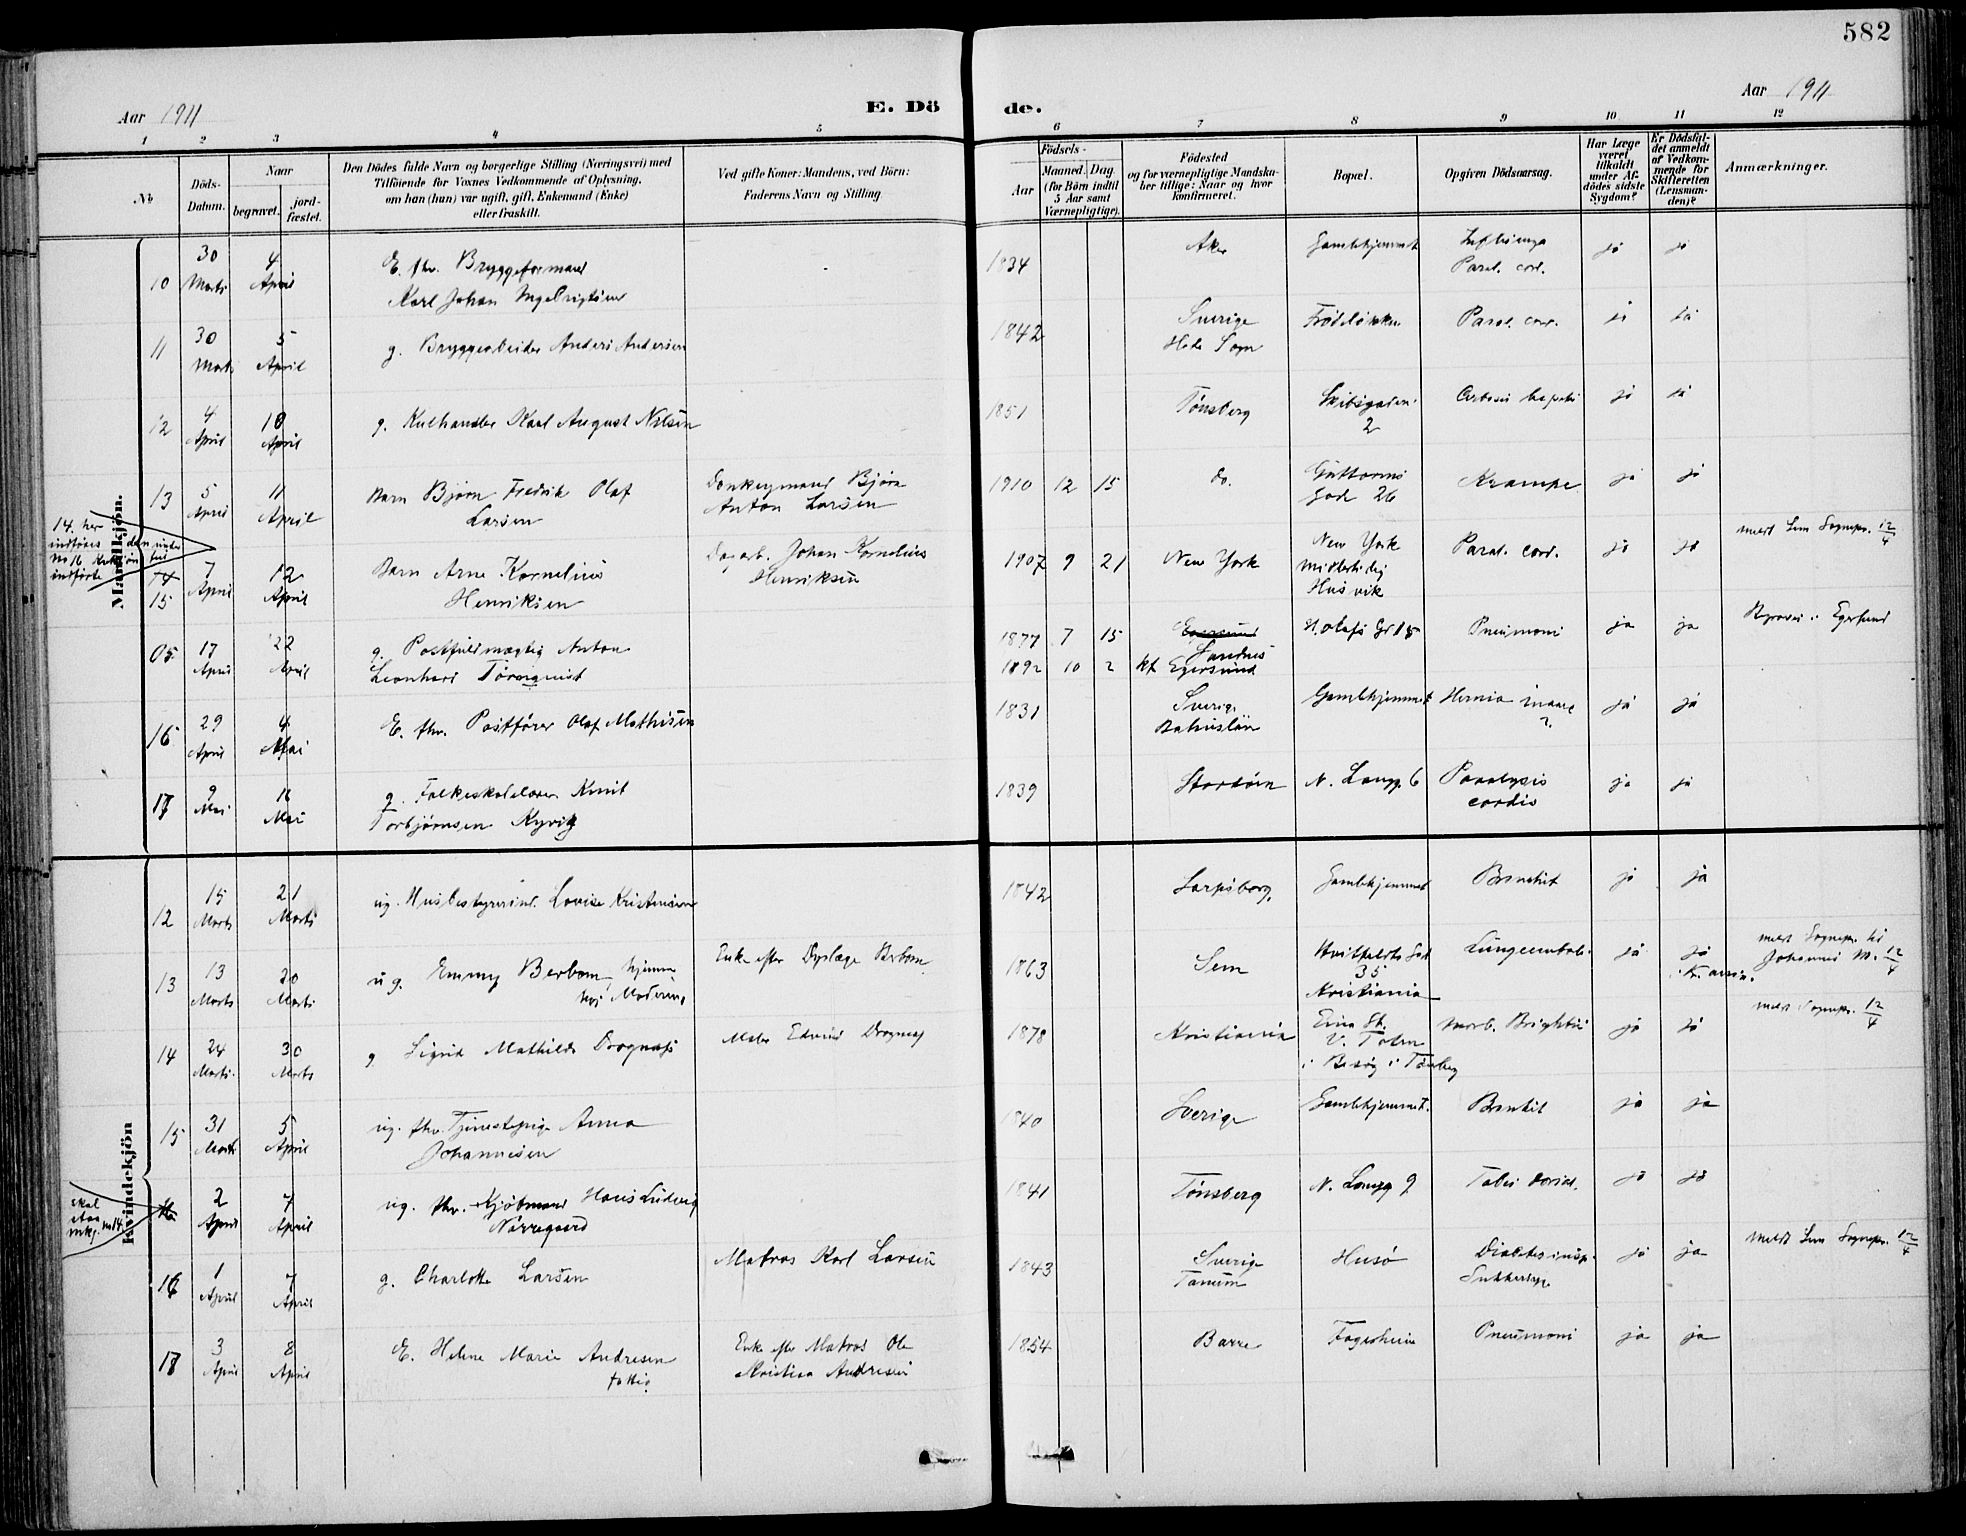 582
Aar 1911
E. Dö
de.
Aar 1911
1 2 3 4 5 6 7 8 9 10 11 12
No
Döds-
Datum.
Naar
begravet.
jord-
fæstet.
Den Dödes fulde Navn og borgerlige Stilling (Næringsvei) med
Tilföiende for Voxnes Vedkommende af Oplysning,
om han (hun) var ugift, gift, Enkemand (Enke)
eller fraskilt.
Ved gifte Koner: Mandens, ved Börn:
Faderens Navn og Stilling
Födsels-
Aar
Maaned.
Dag.
(for Börn indtil
5 Aar samt
Værnepligtige).
Födested
og for værnepligtige Mandska-
ber tillige: Naar og hvor
konfirmeret.
Bopæl.
Opgiven Dödsaarsag.
Har Læge
været
tilkaldt
under Af-
dödes sidste
Sygdom?
Er Dödsfal-
det anmeldt
af Vedkom-
mende for
Skifteretten
(Lensman-
den)?
Anmærkninger.
Mandkjön.
10 30 Marts 4 April E. fhv. Bryggeformand
Karl Johan
1834 Aker Gamlehjemmet Influenza
Paral. cord. ja ja
11 30 Marts 5 April g. Bryggearbeider Anders Andersen
1842 Sverige
Sogn Paral. cord. ja ja
12 4 April 10 April g. Kulhandler Karl August Nilsen
1851 Tönsberg Skibsgaden
2 ja ja
13 5 April 11 April Barn Bjørn Fredrik Olaf
Larsen
Donkeymand Bjørn
Anton Larsen
1910 12 15 do. Guttorms
Gade 26 Krampe ja ja
14. her
indföres den under
No 16 Kvkjön
indförte
14
15 7 April 12 April Barn Arne Kornelius
Henriksen
Johan Kornelius
Henriksen
1907 9 21 New York New York
midlertidig
Husvik Paral. cord. ja ja meldt Sem Sognepr. 12/4
17 April 22 April g. Postfuldmægtig Anton
Leonhard Törnquist
1877 7 15 Egersund
1892 10 2 kf Egersund
St. Olafs Gd 15 Pneumoni ja ja Egersund
16 29 April 4 Mai E. fhv. Postförer Olaf Mathisen
1831 Sverige
Bahuslän Gamlehjemmet Hernia ja ja
17 9 Mai Mai g. Folkeskolelærer Knut
Torbjørnsen Kyvig
1839 Stordöen N. Langg. 6 Paralysis
cordis ja ja
Kvindekjön
12 15 Marts 21 Marts ug. Husbestyrerind. Lovise Kristensen
1842 Sarpsborg. Gamlehjemmet Bronchit ja ja
13 13 Marts 20 Marts ug. Emmy Berbom, hjemme
hos Moderen,
Enke efter Dyrlæge Berbom
1863 Sem Hvitfeldts Gd
35
Kristiania Lungeemboli ja ja
meldt Sognepr. til
Johannes M. 12/4
14 24 Marts 30 Marts g Sigrid Mathilde
Maler Edvind
1878 Kristiania Eina St.
V. Toten
i Besög i Tönsberg morb. Brightii ja ja meldt Sognepr. 12/4
15 31 Marts 5 April ug. fhv. Tjenestepige Anna
Johannesen
1840 Sverige Gamlehjemmet. Bronkit ja ja
skal
staa
mkj. no 14
16 2 April 7 April ug. fhv. Kjöbmand Hans Ludvig
Nörregaard
1841 Tönsberg N. Langg 9 Tabes dorsal. ja ja
16 1 April 7 April g. Charlotte Larsen
Matros Karl Larsen
1843 Sverige
Tanum Husø Diabetes insip.
Sukkersyge ja ja meldt Sem Sognepr. 12/4
17 3 April 8 April E. Helene Marie Andresen
fattig
Enke efter Matros Ole
Kristian Andresen
1854 Borre Fagerheim Pneumoni ja ja